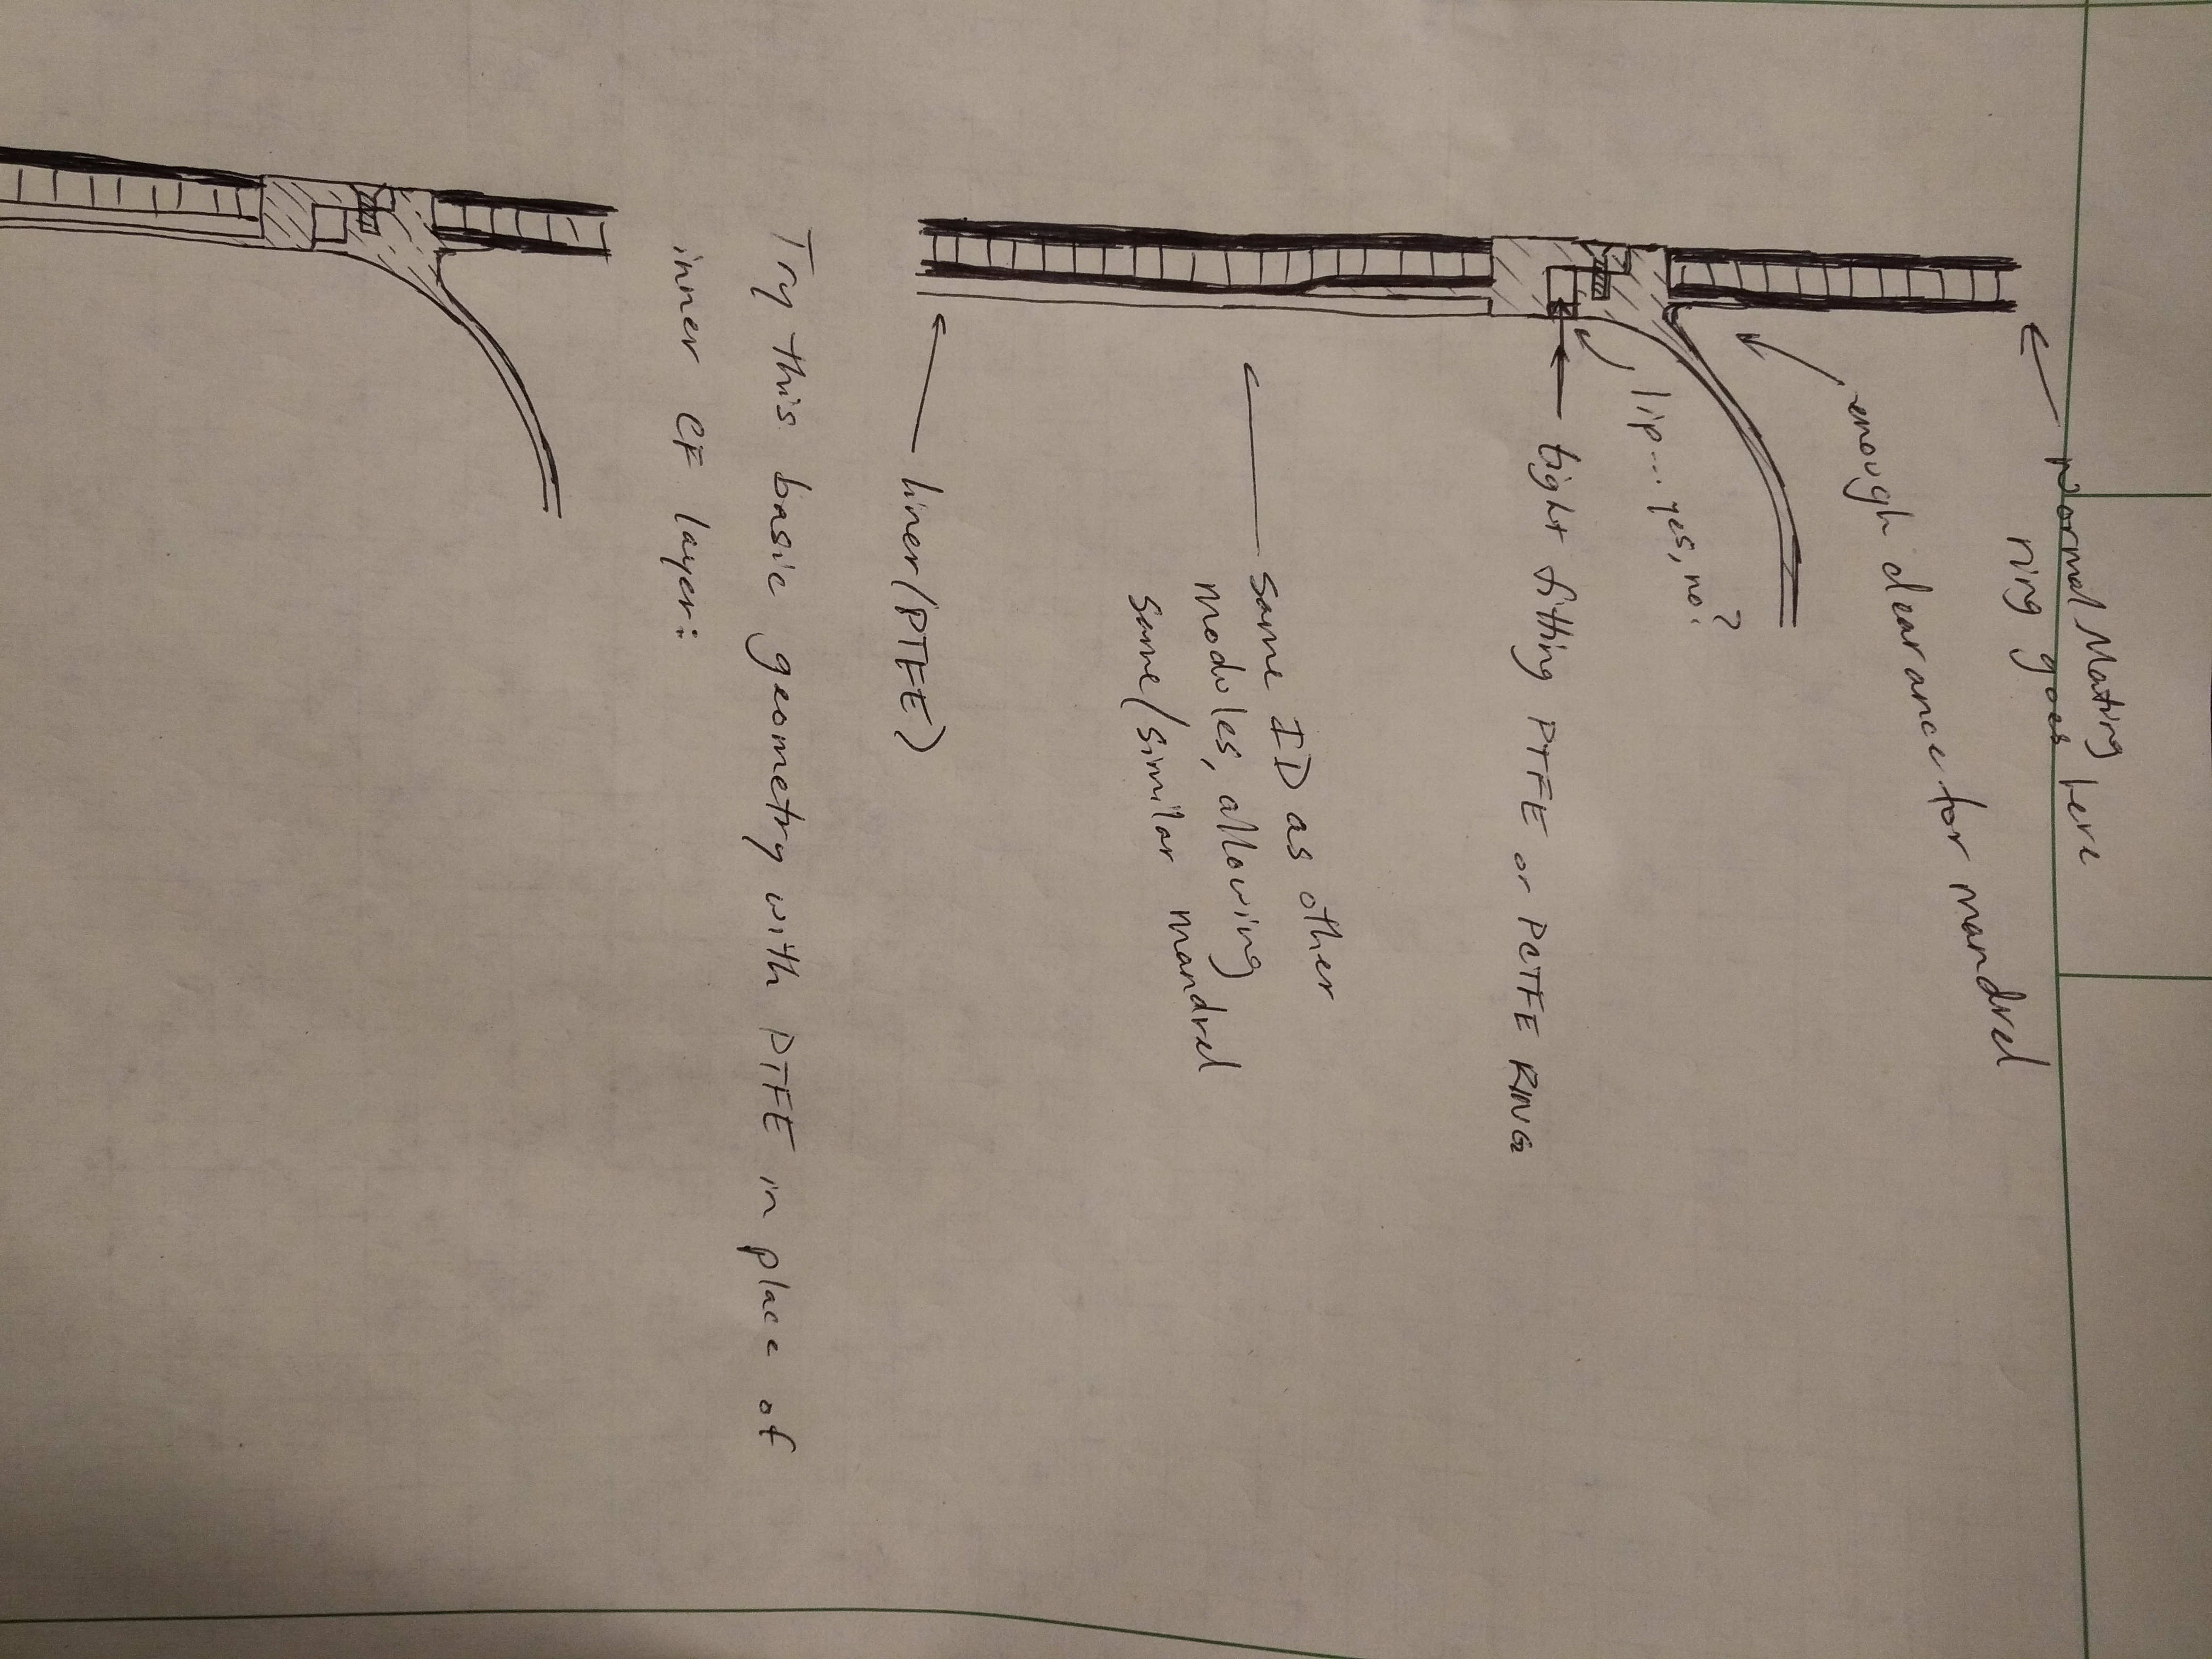 Normal Mating
ring goes here
enough clearance for mandrel
lip... yes, no?
tight fitting PTFE or PCTFE RING
same ID as other
modules, allowing
same/similar mandrel
liner/(PTFE)
Try this basic geometry with PTFE in place of
inner CF layer: